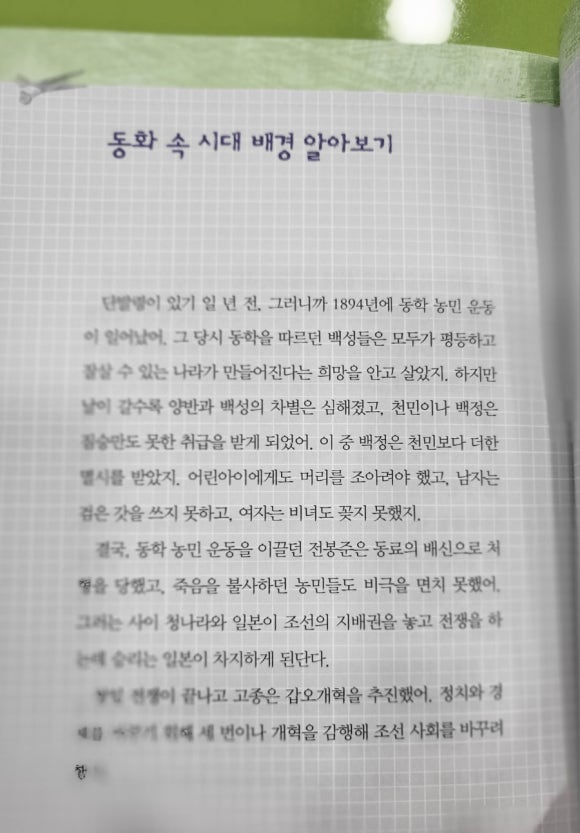 동화 속 시대 배경 알아보기
단발령이 있기 일 년 전, 그러니까 1894년에 동학 농민 운동
이 일어났어. 그 당시 동학을 따르던 백성들은 모두가 평등하고
잘살 수 있는 나라가 만들어진다는 희망을 안고 살았지. 하지만
날이 갈수록 양반과 백성의 차별은 심해졌고, 천민이나 백정은
짐승만도 못한 취급을 받게 되었어. 이 중 백정은 천민보다 더한
멸시를 받았지. 어린아이에게도 머리를 조아려야 했고, 남자는
검은 갓을 쓰지 못하고, 여자는 비녀도 꽂지 못했지.
결국, 동학 농민 운동을 이끌던 전봉준은 동료의 배신으로 처
형을 당했고, 죽음을 불사하던 농민들도 비극을 면치 못했어.
그러는 사이 청나라와 일본이 조선의 지배권을 놓고 전쟁을 하
는데 승리는 일본이 차지하게 된단다.
전쟁이 끝나고 고종은 갑오개혁을 추진했어. 정치와 경
제를 위해 세 번이나 개혁을 감행해 조선 사회를 바꾸려